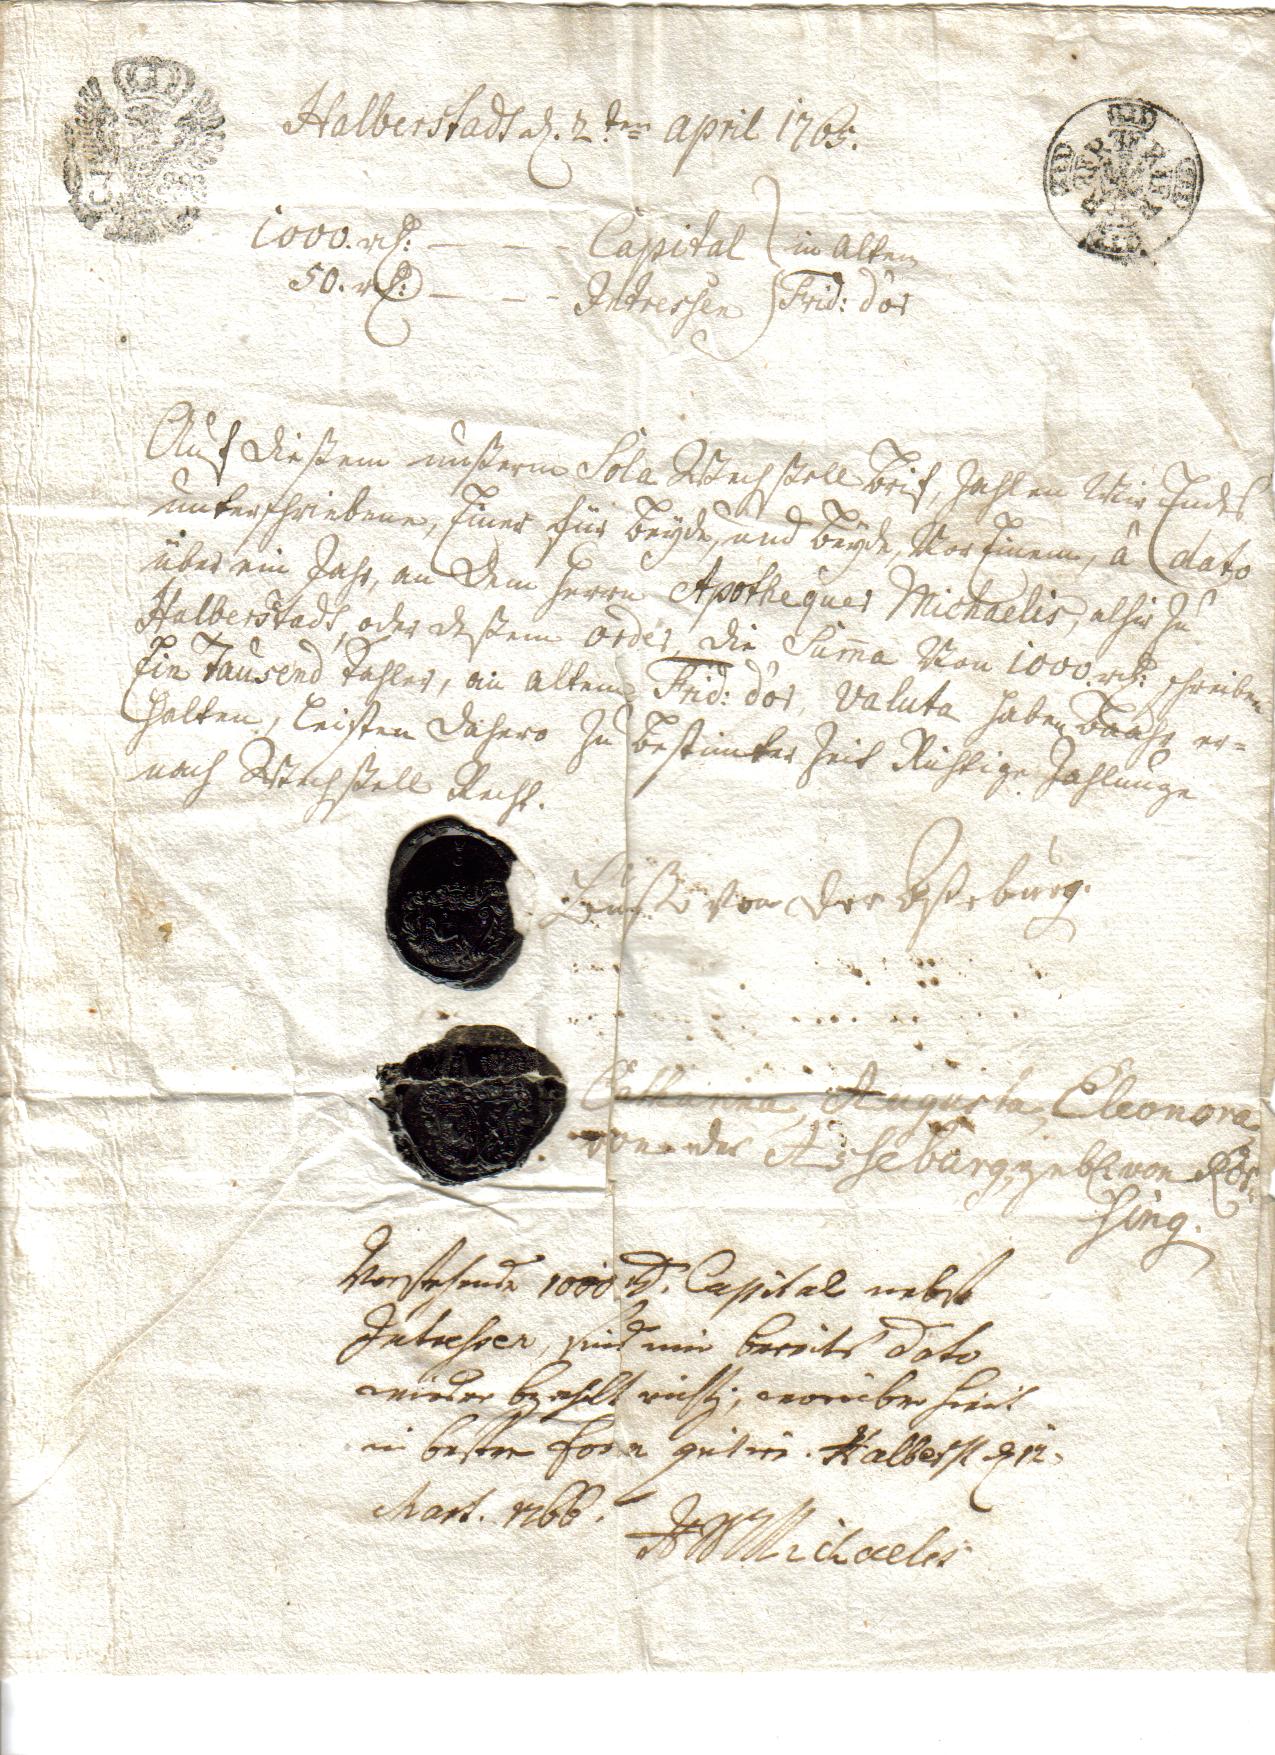 Halberstadt d. 2ten april 1765.
1000. rth: — — — Capital } in alten
50. rth: — — — Intressen } Frid: d'or
Auf dießem unßerm Sola Wechßell Brif, zahlen Wir Endes
unterschriebene, Einer für Beyde, und Beyde, Vor Einen, â dato
über ein Jahr, an dem Herrn Apothequer Michaelis, alhir zu
Halberstadt, oder deßem order, die Summa Von 1000. rth: schreibe
Ein Tausend Tahler, in alten Frid: d'or, valuta haben Baahr er=
halten, leisten dahero zu Bestimter Zeit Richtige Zahlunge
nach Wechßell Recht.
von der Aßeburg.
Catharina, Augusta, Eleonora
von der Asseburg, gebl. von Kös-
sing.
Vorstehende 1000 Capital nebst
Intressen, sind mir bereits dato
wieder bezahlt, worüber hirmit
in bester form quitire. Halberst d 12
Mart. 1766.
Michaelis